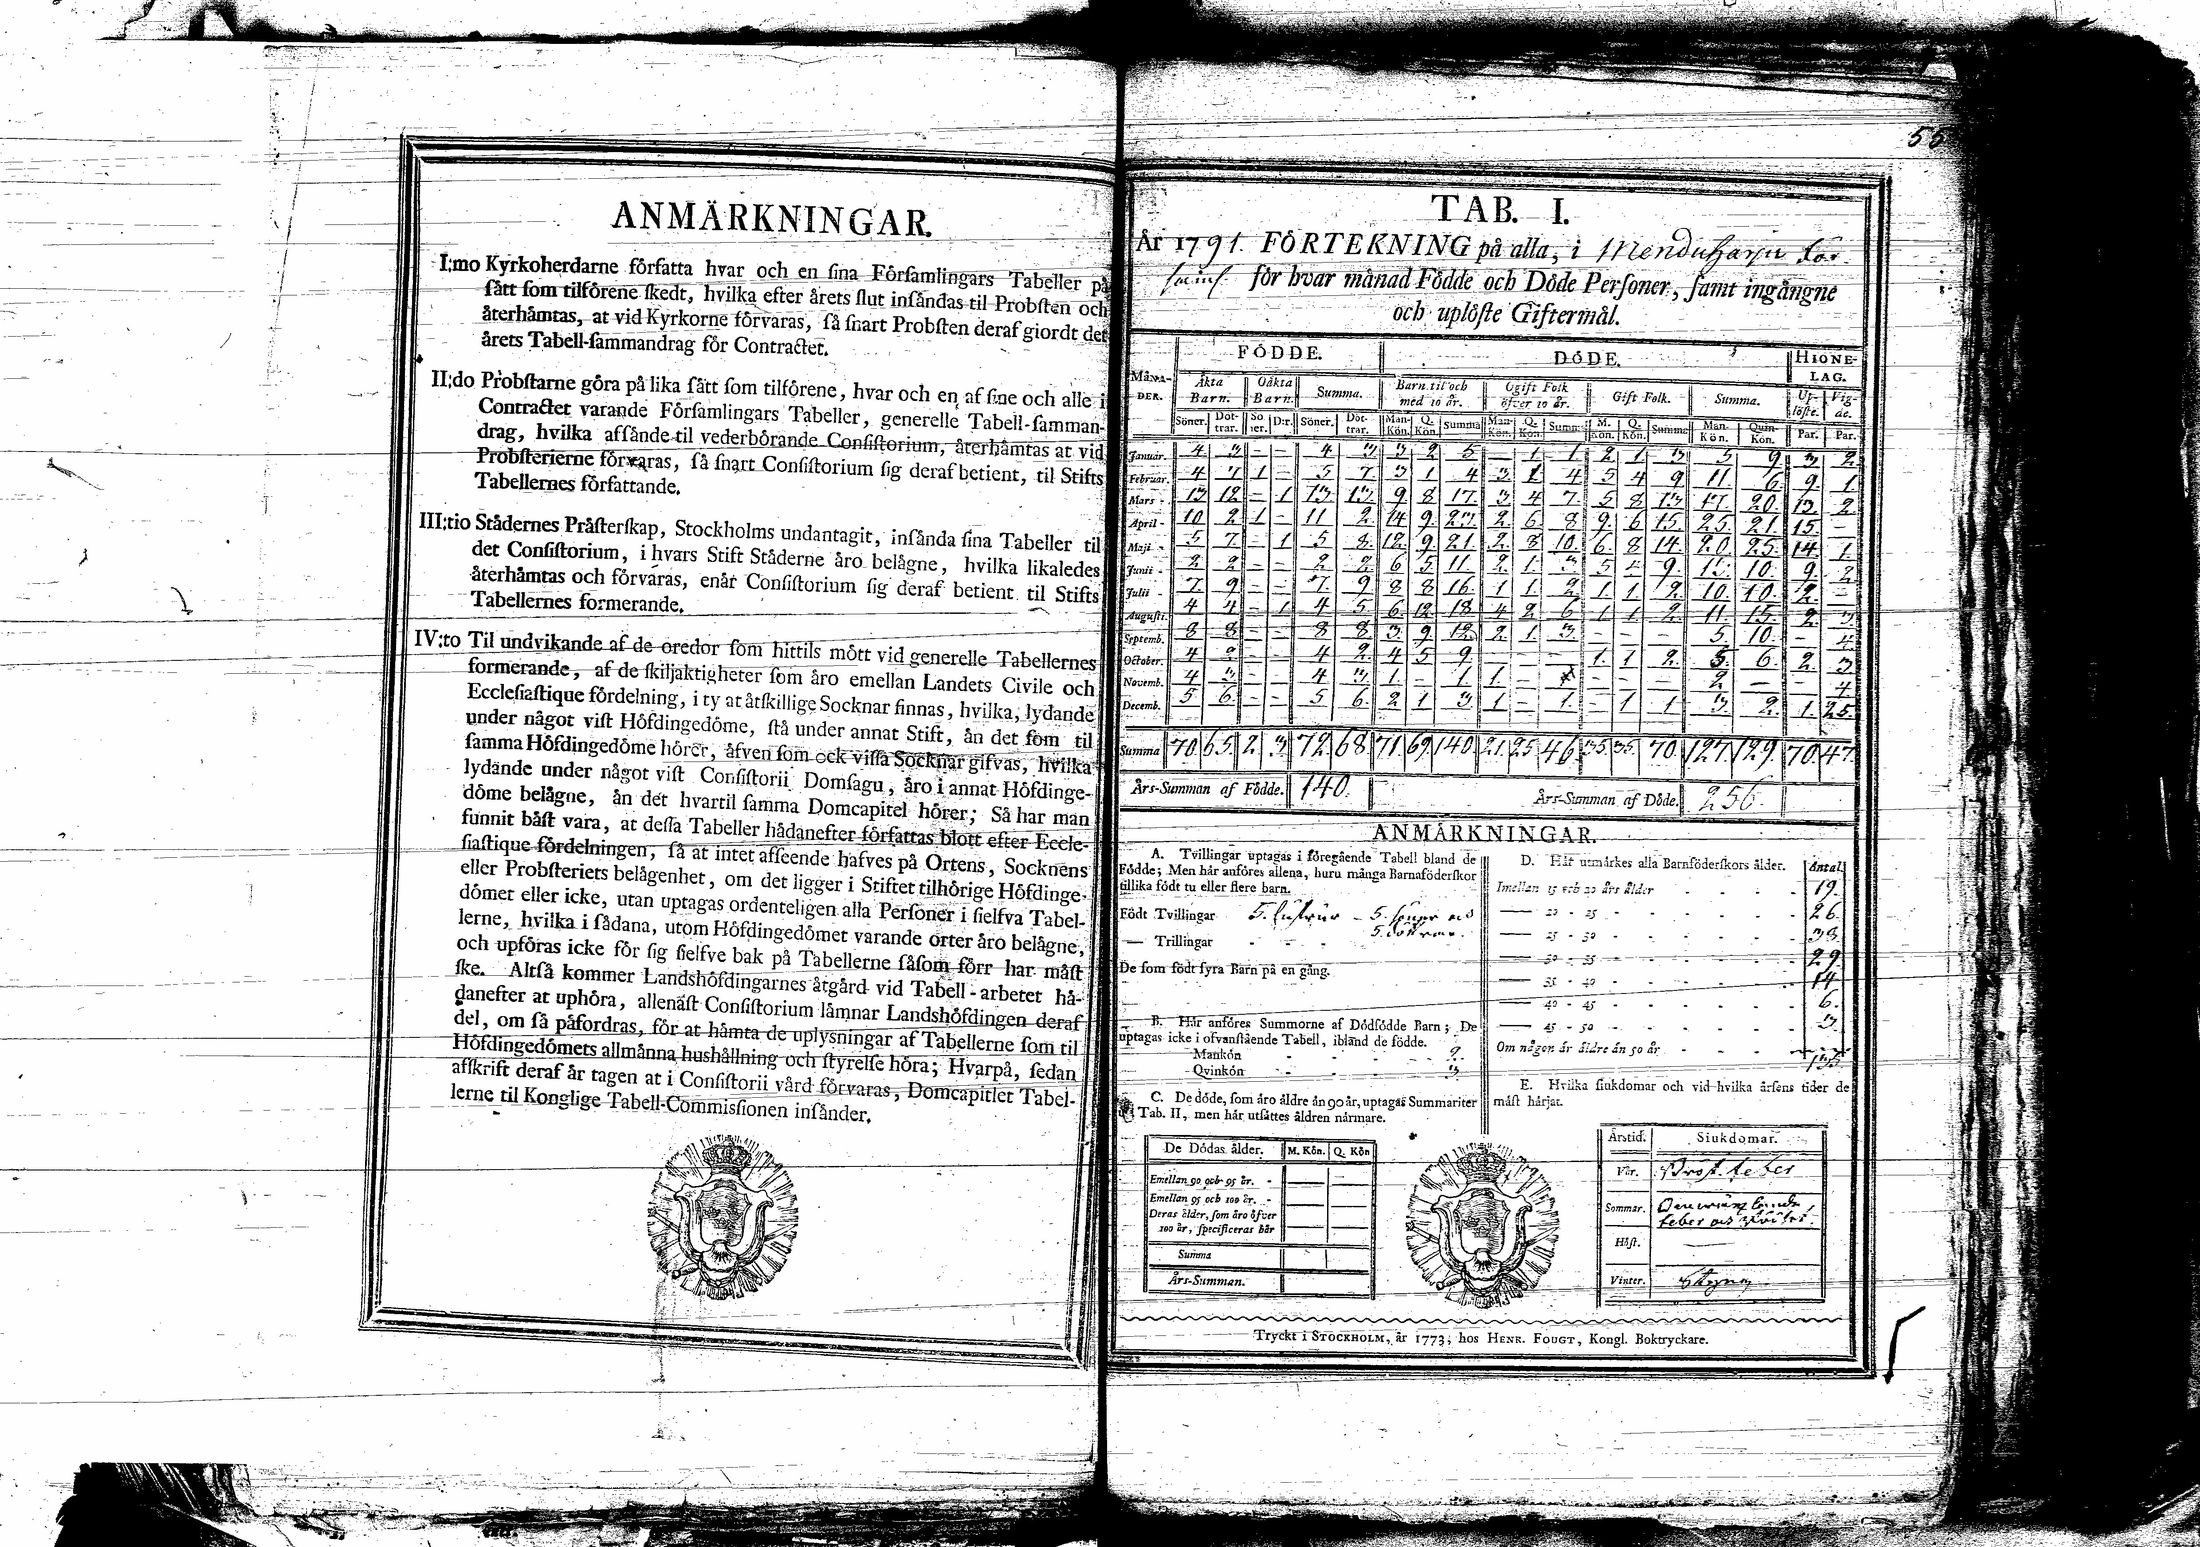 ANMÄRKNINGAR.
I:mo Kyrkoherdarne författa hvar och en sina Församlingars Tabeller på
sätt som tilförene skedt, hvilka efter årets slut insändas til Probsten och
återhämtas, at vid Kyrkorne förvaras, så snart Probsten deraf giordt det
årets Tabell-sammandrag för Contractet.
II:do Probstarne göra på lika sätt som tilförene, hvar och en af sine och alle i
Contractet varande Församlingars Tabeller, generelle Tabell-samman-
drag, hvilka afsände til vederbörande Consistorium, återhämtas at vid
Probsterierne förvaras, så snart Consistorium sig deraf betient, til Stifts
Tabellernes författande.
III:tio Städernes Prästerskap, Stockholms undantagit, insända sina Tabeller til
det Consistorium, i hvars Stift Städerne äro belägne, hvilka likaledes
återhämtas och förvaras, enär Consistorium sig deraf betient til Stifts
Tabellernes formerande.
IV:to Til undvikande af de oredor som hittils mött vid generelle Tabellernes
formerande, af de skiljaktigheter som äro emellan Landets Civile och
Ecclesiastique fördelning, i ty at åtskillige Socknar finnas, hvilka, lydande
under något vist Höfdingedöme, stå under annat Stift, än det som til
samma Höfdingedöme hörer, äfven som ock vissa Socknar gifvas, hvilka
lydande under något vist Consistorii Domsagu, äro i annat Höfdinge-
döme belägne, än det hvartil samma Domcapitel hörer; Så har man
funnit bäst vara, at dessa Tabeller hädanefter författas blott efter Eccle-
siastique fördelningen, så at intet afseende hafves på Ortens, Socknens
eller Probsteriets belägenhet, om det ligger i Stiftet tilhörige Höfdinge-
dömet eller icke, utan uptagas ordenteligen alla Personer i sielfva Tabel-
lerne, hvilka i sådana, utom Höfdingedömet varande orter äro belägne,
och upföras icke för sig sielfve bak på Tabellerne såsom förr har måst
ske. Altså kommer Landshöfdingarnes åtgärd vid Tabell-arbetet hä-
danefter at uphöra, allenast Consistorium lämnar Landshöfdingen deraf
del, om så påfordras, för at hämta de uplysningar af Tabellerne som til
Höfdingedömets allmänna hushållning och styrelse höra; Hvarpå, sedan
afskrift deraf är tagen at i Consistorii vård förvaras, Domcapitlet Tabel-
lerne til Konglige Tabell-Commissionen insänder.
55
TAB. I.
År 1791. FÖRTEKNING på alla, i
för hvar månad Födde och Döde Personer, samt ingångne
och uplöste Giftermål.
MÅNA-DER. FÖDDE. DÖDE. HIONE-LAG.
Äkta Barn. Oäkta Barn. Summa. Barn til och med 10 år. Ogift Folk öfver 10 år. Gift Folk. Summa. Up-löste. Vig-de.
Söner. Döt-trar. Sö ner. D:r. Söner. Döt-trar. Man-Kön. Q. Kön. Summa Man-Kön. Q. Kön. Summ: M. Kön. Q. Kön. Summa Man-Kön. Quin-Kön. Par. Par.
Januar. 4 3 - - 4 3 3 2 5 - 1 1 2 1 3 5 9 3 2
Februar. 4 7 1 - 5 7 3 1 4 3 1 4 5 4 9 11 6 9 1
Mars 13 12 - 1 13 13 9 8 17 3 4 7 5 8 13 17 20 13 2
April 10 2 1 - 11 2 14 9 23 2 6 8 9 6 15 25 21 15 -
Maji 5 7 - 1 5 8 12 9 21 2 8 10 6 8 14 20 25 14 1
Junii 2 2 - - 2 2 6 5 11 2 1 3 5 4 9 13 10 9 2
Julii 7 9 - - 7 9 8 8 16 1 1 2 1 1 2 10 10 2 -
Augusti. 4 4 - 1 4 5 6 12 18 4 2 6 1 1 2 11 15 2 3
Septemb. 8 8 - - 8 8 3 9 12 2 1 3 - - - 5 10 - 4
October. 4 2 - - 4 2 4 5 9 - - - 1 1 2 5 6 2 3
Novemb. 4 3 - - 4 3 1 - 1 1 - - - - 2 - - 4
Decemb. 5 6 - - 5 6 2 1 3 1 - 1 - 1 1 3 2 1 25
Summa 70 65 2 3 72 68 71 69 140 21 25 46 35 35 70 127 129 70 47
Års-Summan af Födde. 140. Års-Summan af Döde. 256.
ANMÄRKNINGAR.
A. Tvillingar uptagas i föregående Tabell bland de
Födde; Men här anföres allena, huru många Barnaföderskor
tillika födt tu eller flere barn.
Födt Tvillingar
— Trillingar
De som födt fyra Barn på en gång.
B. Här anföres Summorne af Dödfödde Barn; De
uptagas icke i ofvanstående Tabell, ibland de födde.
Mankön 2.
Qvinkön 3
C. De döde, som äro äldre än 90 år, uptagas Summariter
i Tab. II, men här utsättes åldren närmare.
De Dödas ålder. M. Kön. Q. Kön
Emellan 90 och 95 år.
Emellan 95 och 100 år.
Deras ålder, som äro öfver
100 år, specificeras här
Summa
Års-Summan.
D. Här utmärkes alla Barnföderskors ålder. Antal
Imellan 15 och 20 års ålder 19.
— 20 - 25 26.
— 25 - 30 38
— 30 - 35 29
— 35 - 40 14
— 40 - 45 6.
— 45 - 50 3
Om någon är äldre än 50 år
135
E. Hvilka siukdomar och vid hvilka årsens tider de
mäst härjat.
Årstid. Siukdomar.
Vår. feber
Sommar.
feber och
Höst. —
Vinter.
Tryckt i STOCKHOLM, år 1773, hos HENR. FOUGT, Kongl. Boktryckare.